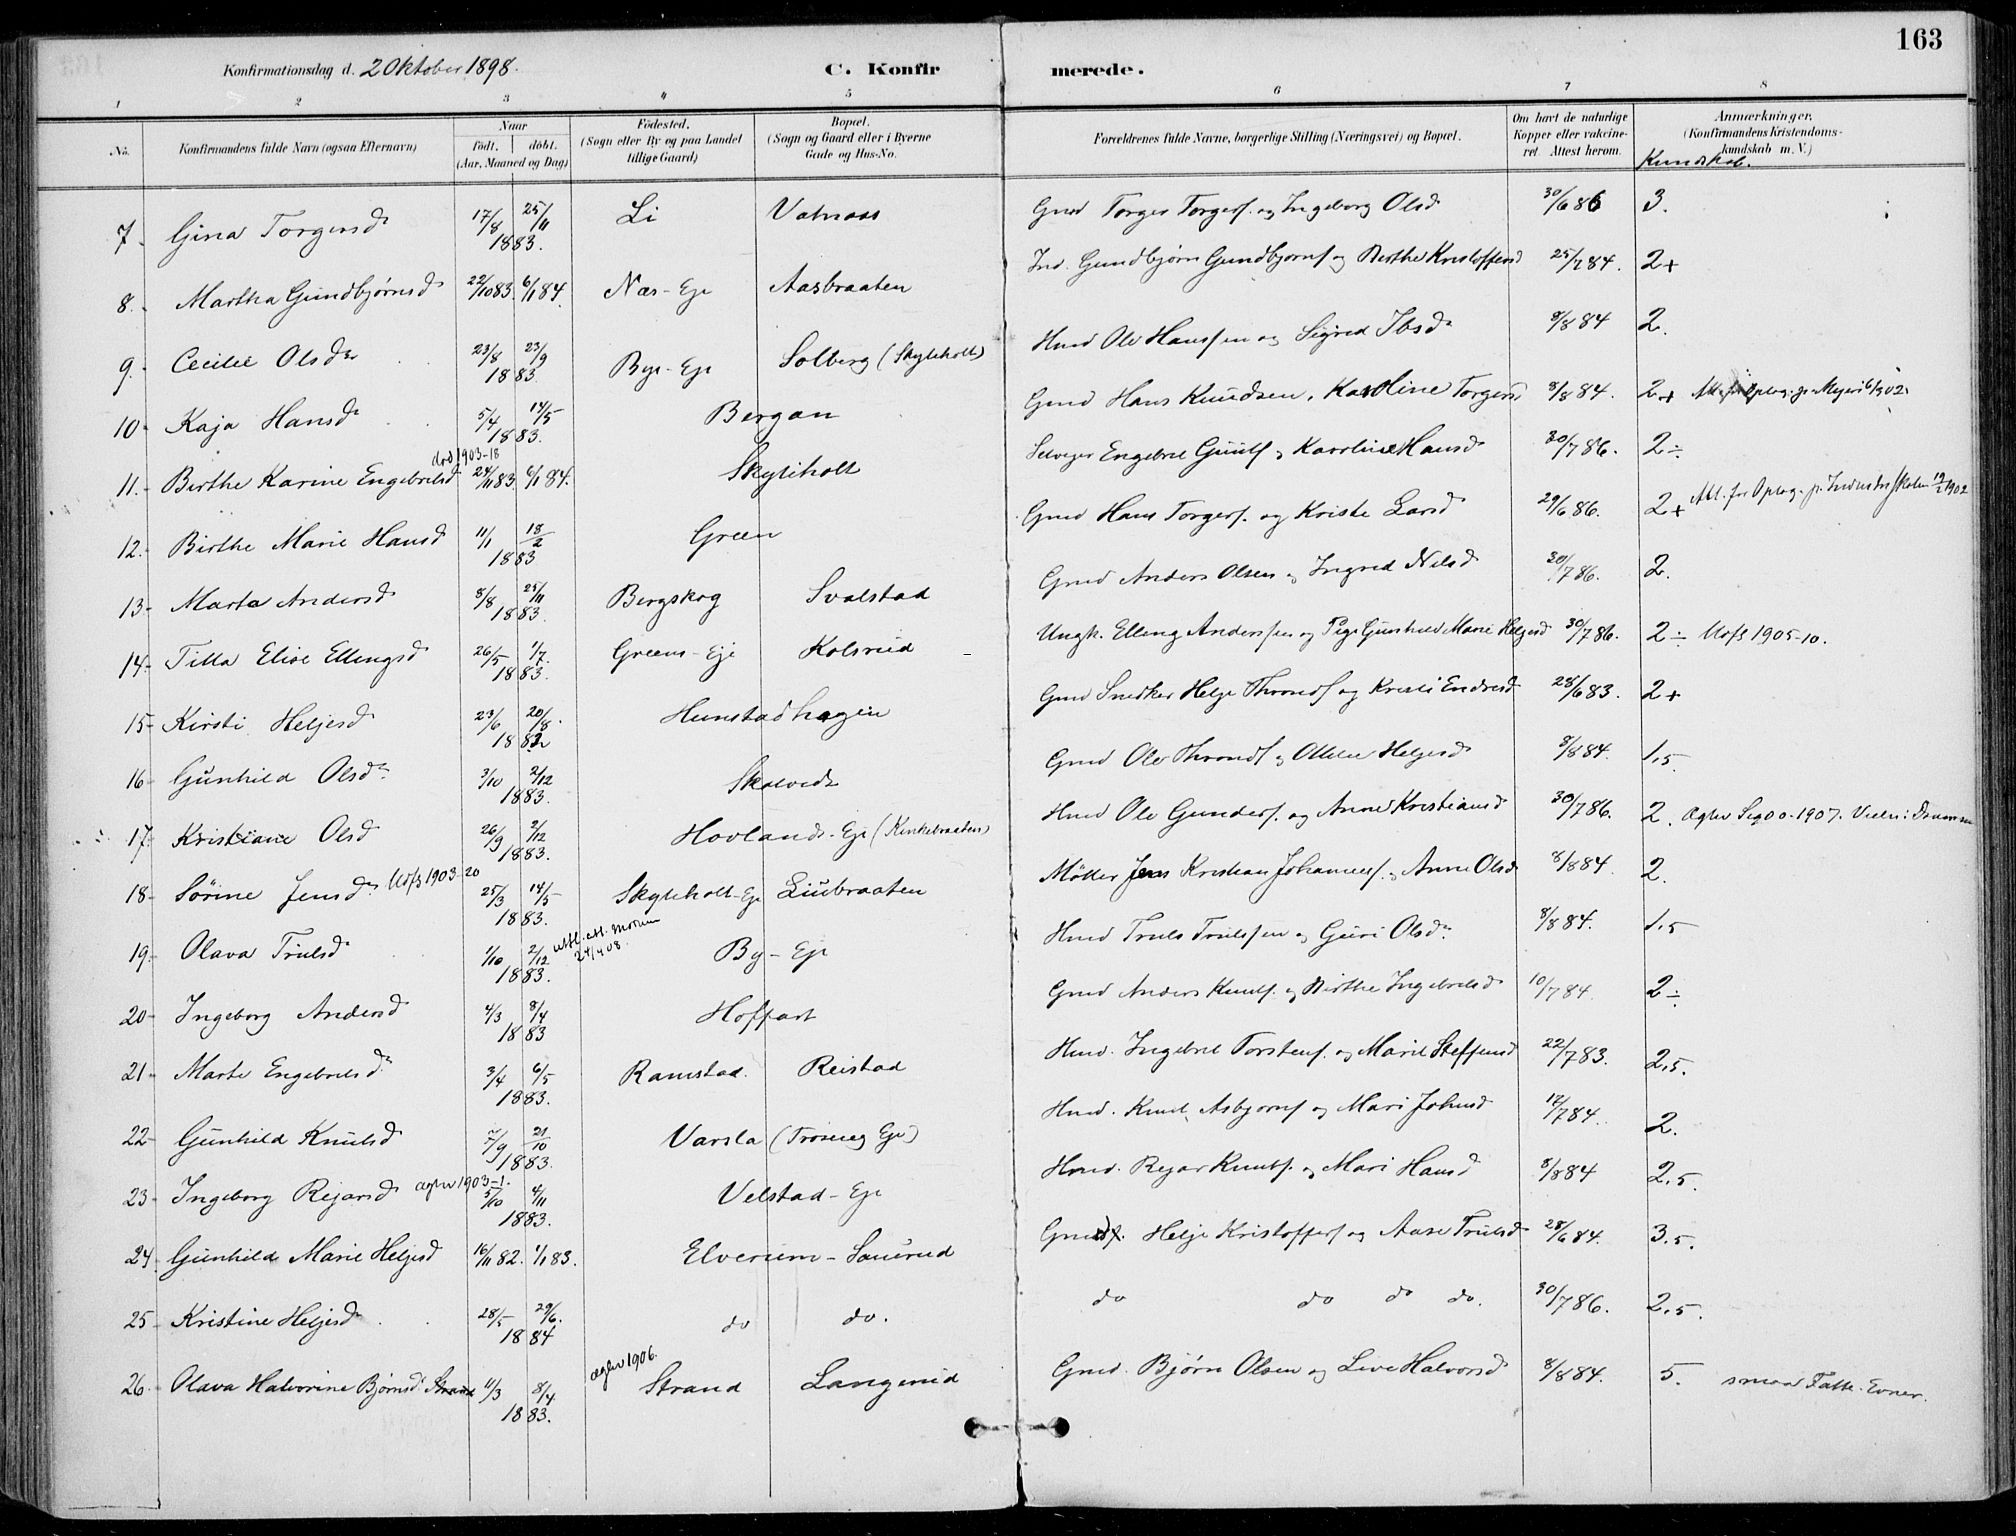 163
Konfirmationsdag d. 2 Oktober 1898. C. Konfirmerede.
1 2 3 4 5 6 7 8
No. Konfirmandens fulde Navn (ogsaa Efternavn) Naar født. døbt. (Aar, Maaned og Dag) Födested. (Sogn eller By og paa Landet tillige Gaard) Bopæl. (Sogn og Gaard eller i Byerne Gade og Hus-No. Forældrenes fulde Navne, borgerlige Stilling (Næringsvei) og Bopæl. Om havt de naturlige Kopper eller vakcineret. Attest herom. Anmærkninger, (Konfirmandens Kristendomskundskab m. V.)
Kundskab.
7 Gina Torgersd 17/8 25/11 1883. Li Gmd Torger Torgers. og Ingeborg Olsd 30/6 86 3.
8. Martha Gundbjørnsd 22/10 83. 6/1 84. Næs-Eje Aasbraaten Ind. Gundbjørn Gundbjørns og Berthe Kristoffersd 25/7 84. 2+
9. Cecilie Olsdr 23/8 23/9 1883 Bye-Eje Solberg (Skyleholt) Hmd Ole Hanssen og Sigrid Ibsd 9/8 84 2.
10 Kaja Hansd 5/4 14/5 1883. Bergan Gmd Hans Knudsen, Karoline Torgersd 8/8 84. 2+
død 1903-18
11. Birthe Karine Engebretsd 24/11 83. 6/1 84. Skyleholt Selveger Engebret Guuls og Karoline Hansd 30/7 86. 2÷
12. Birthe Marie Hansd 11/1 18/2 1883 Green Gmd Hans Torgers. og Kriste Larsd 29/6 86. 2+ Att. for Optag. p. Industriskolen 19/2 1902
13 Marta Andersd 8/8 25/11 1883. Bergskog Svalstad Gmd Anders Olsen og Ingrid Nilsd 30/7 86. 2.
14 Tilla Elise Ellingsd 26/5 1/7. 1883. Greens-Eje Kolsrud Ungk. Elling Anderssen og Pige Gunhild Marie Helgesd 30/7 86. 2÷ Udfs 1905-10.
15 Kirsti Heljesd 23/6 20/8. 1882 Hunstadhagen Gmd Snedker Helje Thronds og Kristi Endresd 28/6 83. 2+
16 Gunhild Olsdr 3/10 2/12 1883. Skalvedt Gmd Ole Thronds og Ollelie Heljesd 8/8 84. 1,5.
17 Kristiane Olsd 26/9 2/12 1883. Hovlands-Eje (Kinkebraaten) Hmd Ole Gunders. og Anne Kristiansd 30/7 86. 2. Ægtev
18 Sørine Jensdr Udfs 1903-20 25/3 14/5 1883. Skyleholt-Eje Liubraaten Møller Jens Kristian Johannes. og Anne Olsd 8/8 84. 2.
19. Olava Trulsd 1/10 2/12 1883. utfl. att. Modum 24/4 08. By-Eje Hmd Truls Trulssen og Guri Olsdr 8/8 84. 1,5
20 Ingeborg Andersd 4/3 8/4 1883 Hoffart Gmd Anders Knuts. og Birthe Ingebretsd 10/7 84. 2÷
21 Marte Engebretsdr 3/4 6/5 1883. Ramstad. Reistad Hmd. Ingebret Torstens. og Marit Steffensd 22/7 83. 2,5.
22 Gunhild Knutsd 7/9 21/10 1883. Varsla Hmd. Knut Asbjørns og Mari Johnsd 12/7 84. 2.
23 Ingeborg Rejarsd ægtev 1903-1. 5/10 4/11 1883. Velstad-Eje Hmd. Rejar Knuts. og Mari Hansd 8/8 84 2,5.
24. Gunhild Marie Heljesd 16/11 82. 1/1 83. Elverum-Saurud Gmd f. Helje Kristoffers og Aase Trulsd 28/6 84. 3,5.
25 Kristine Heljesd 28/5 29/6. 1884 do do. do do do do. 30/7 86. 2,5.
ægtev 1906.
26. Olava Halvorine Bjørnsd Strand 11/3 8/4 1883. Strand Langerud Gmd. Bjørn Olsen og Live Halvorsd 8/8 84. 5. smaa Fatte-Evner.